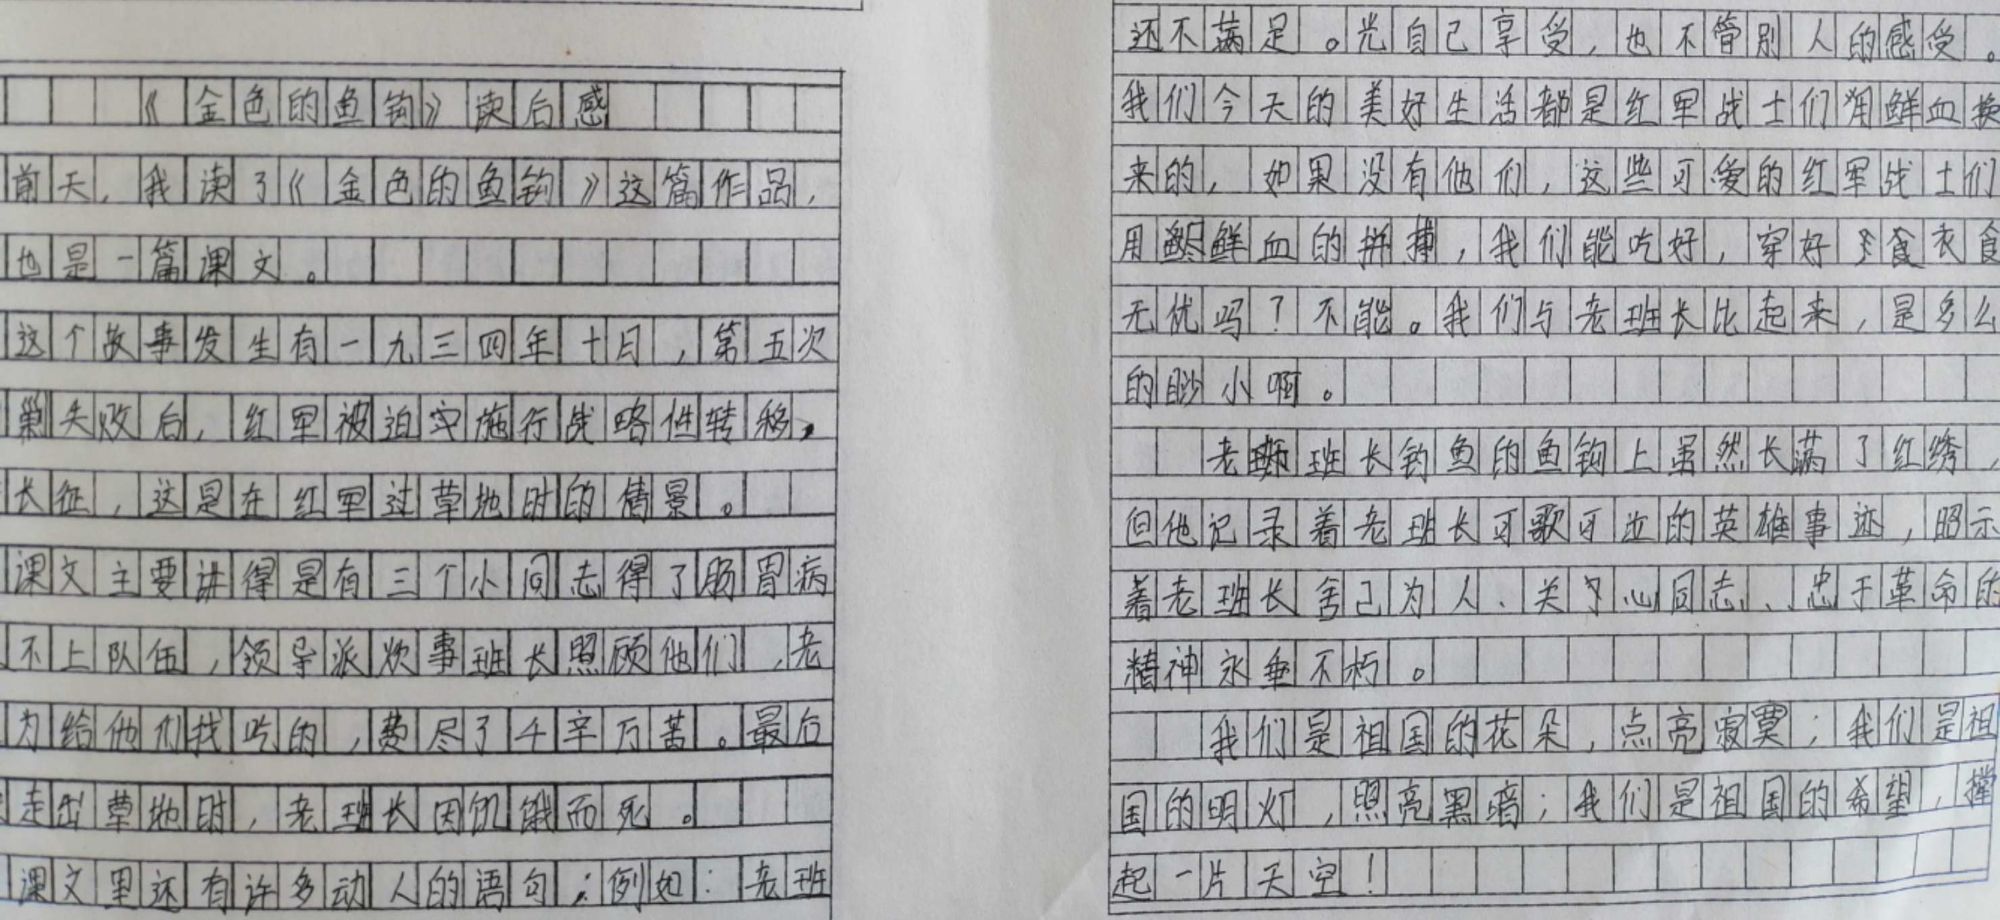 《金色的鱼钩》读后感
前天，我读了《金色的鱼钩》这篇作品，
也是一篇课文。
这个故事发生有一九三四年十月，第五次
失败后，红军被迫实施行战略性转移，
长征，这是在红军过草地时的情景。
课文主要讲得是有三个小同志得了肠胃病
不上队伍，领导派炊事班长照顾他们，老
为给他们找吃的，费尽了千辛万苦。最后
走出草地时，老班长因饥饿而死。
课文里还有许多动人的语句；例如：老班
还不满足。光自己享受，也不管别人的感受。
我们今天的美好生活都是红军战士们用鲜血换
来的，如果没有他们，这些可爱的红军战士们
用鲜血的拼搏，我们能吃好，穿好衣食
无忧吗？不能。我们与老班长比起来，是多么
的眇小啊。
老班长钓鱼的鱼钩上虽然长满了红绣，
但他记录着老班长可歌可泣的英雄事迹，昭示
着老班长舍己为人、关心同志、忠于革命的
精神永垂不朽。
我们是祖国的花朵，点亮寂寞；我们是祖
国的明灯，照亮黑暗；我们是祖国的希望，撑
起一片天空！